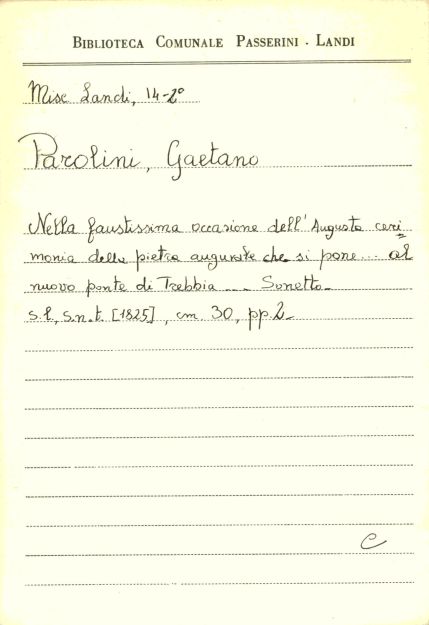 BIBLIOTECA COMUNALE PASSERINI - LANDI
Misc Landi, 14-2°
Parolini, Gaetano
Nella faustissima occasione dell'Augusta ceri=
monia della pietra augurale che si pone... al
nuovo ponte di Trebbia --- Sonetto-
s.l., s.n.t. [1825], cm. 30, pp. 2-
C